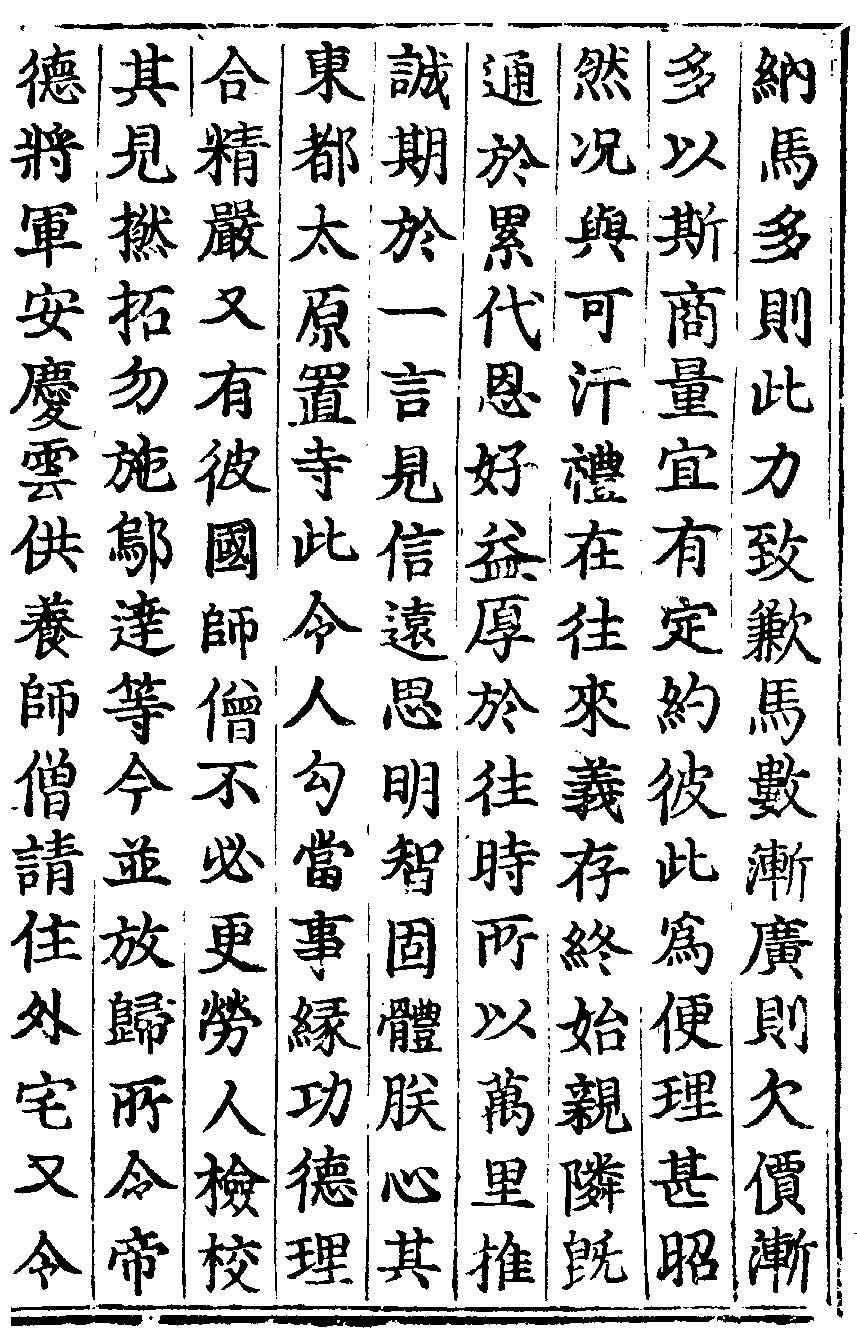 納馬多則此力致歉馬數漸廣則欠價漸
多以斯商量宜有定約彼此為便理甚昭
然况與可汗禮在往來義存終始親隣旣
通於累代恩好益厚於往時所以萬里推
誠期於一言見信遠思明智固體朕心其
東都太原置寺此令人勾當事緣功德理
合精嚴又有彼國師僧不必更勞人檢校
其見撚拓勿施鄔達等今並放歸所令帝
德將軍安慶雲供養師僧請住外宅又令